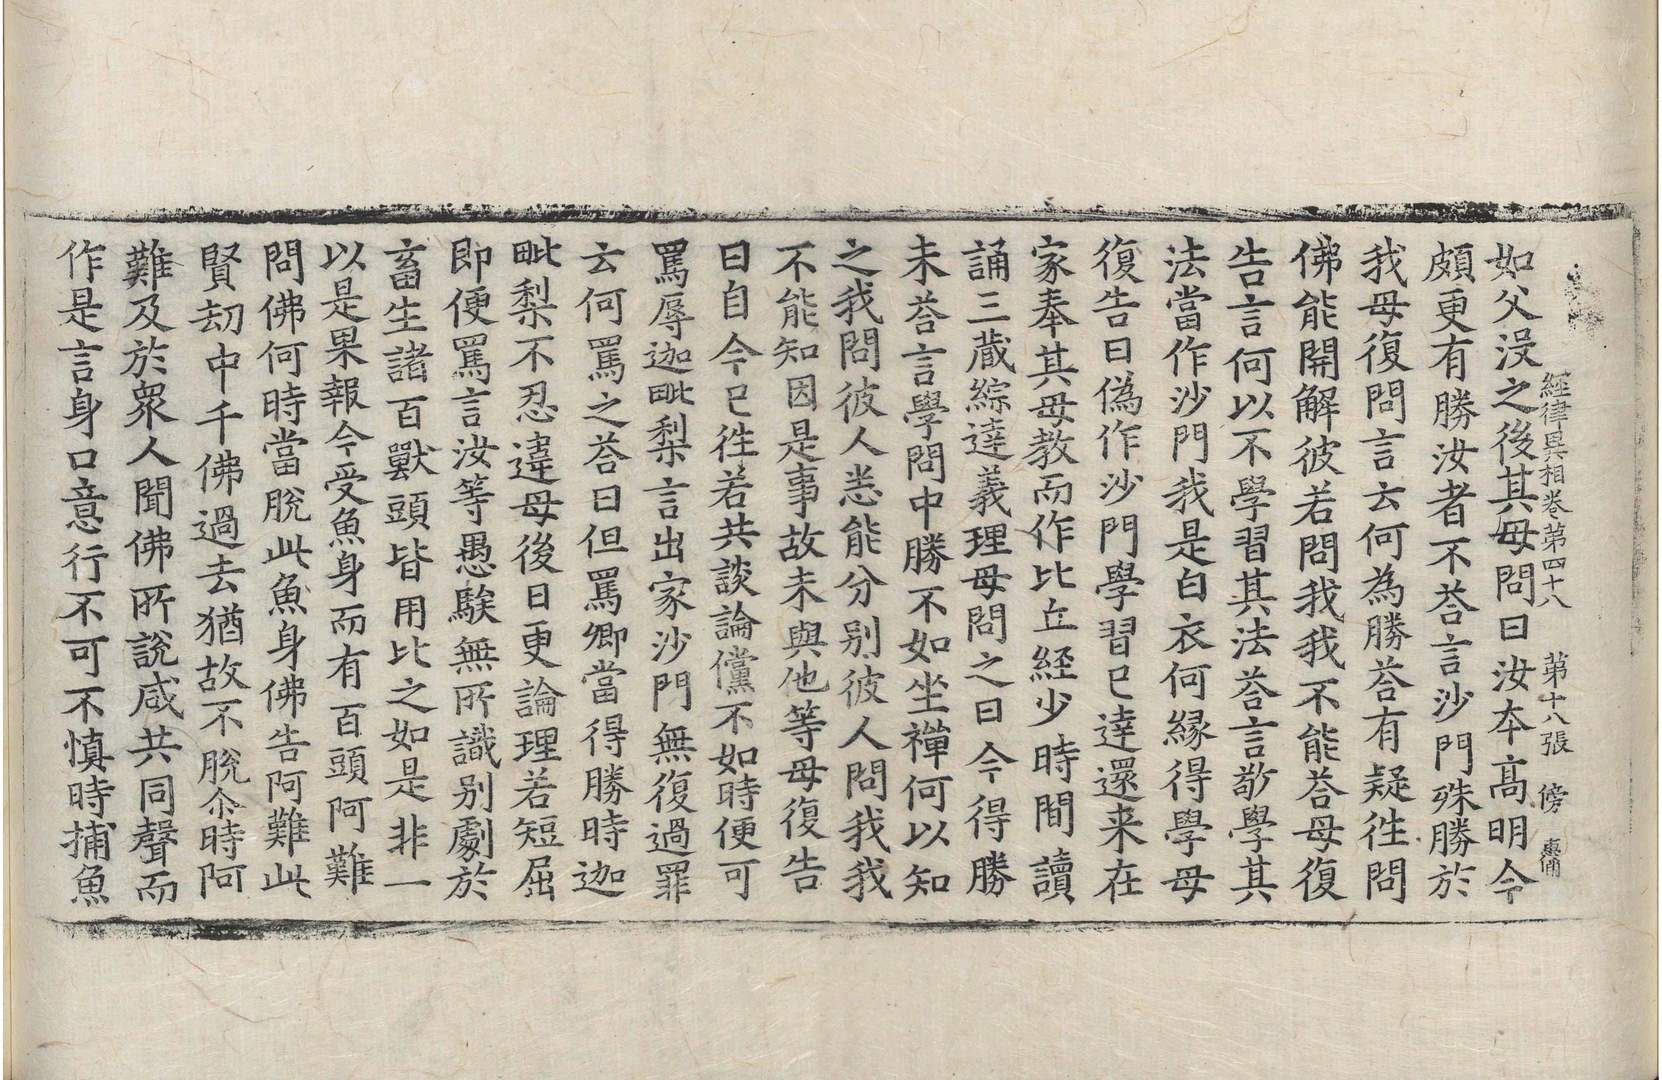 經律異相卷第四十八　第十八張　傍　惠俌
如父沒之後其母問曰汝本高明今
頗更有勝汝者不荅言沙門殊勝於
我母復問言云何為勝荅有疑徃問
佛能開解彼若問我我不能荅母復
告言何以不學習其法荅言欲學其
法當作沙門我是白衣何緣得學母
復告曰偽作沙門學習已達還来在
家奉其母教而作比丘經少時間讀
誦三藏綜達義理母問之曰今得勝
未荅言學問中勝不如坐禪何以知
之我問彼人悉能分別彼人問我我
不能知因是事故未與他等母復告
曰自今已徃若共談論儻不如時便可
罵辱迦毗梨言出家沙門無復過罪
云何罵之荅曰但罵卿當得勝時迦
毗梨不忍違母後日更論理若短屈
即便罵言汝等愚騃無所識別劇於
畜生諸百獸頭皆用比之如是非一
以是果報今受魚身而有百頭阿難
問佛何時當脫此魚身佛告阿難此
賢劫中千佛過去猶故不脫尒時阿
難及於衆人聞佛所說咸共同聲而
作是言身口意行不可不慎時捕魚